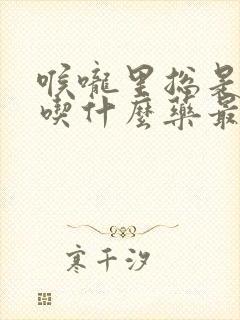 喉嚨里總是
喫什麼藥最
寒千汐